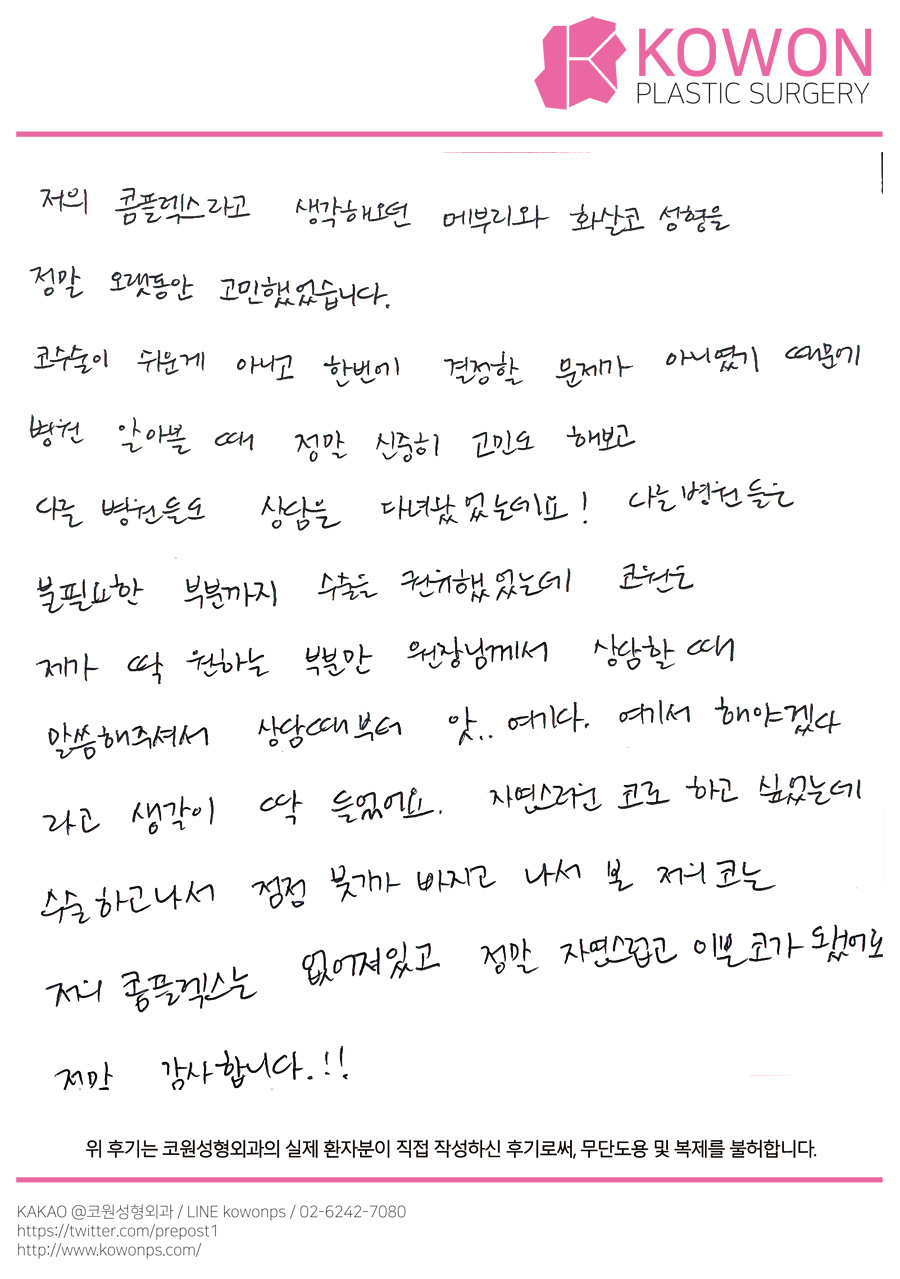 KOWON
PLASTIC SURGERY
저의 콤플렉스라고 생각해오던 메부리와 화살코 성형을
정말 오랫동안 고민했었습니다.
코수술이 쉬운게 아니고 한번에 결정할 문제가 아니였기 때문에
병원 알아볼 때 정말 신중히 고민도 해보고
다른 병원들도 상담을 다녀왔었는데요! 다른병원들은
불필요한 부분까지 수술을 권유했었는데 코원은
제가 딱 원하는 부분만 원장님께서 상담할때
말씀해주셔서 상담때부터 앗.. 여기다. 여기서 해야겠다
라고 생각이 딱 들었어요. 자연스러운 코로 하고 싶었는데
수술하고나서 점점 붓기가 빠지고 나서 본 저의코는
저의 콤플렉스는 없어져있고 정말 자연스럽고 이쁜 코가 됐어요
정말 감사합니다.!!
위 후기는 코원성형외과의 실제 환자분이 직접 작성하신 후기로써, 무단도용 및 복제를 불허합니다.
KAKAO @코원성형외과 / LINE kowonps / 02-6242-7080
https://twitter.com/prepost1
http://www.kowonps.com/